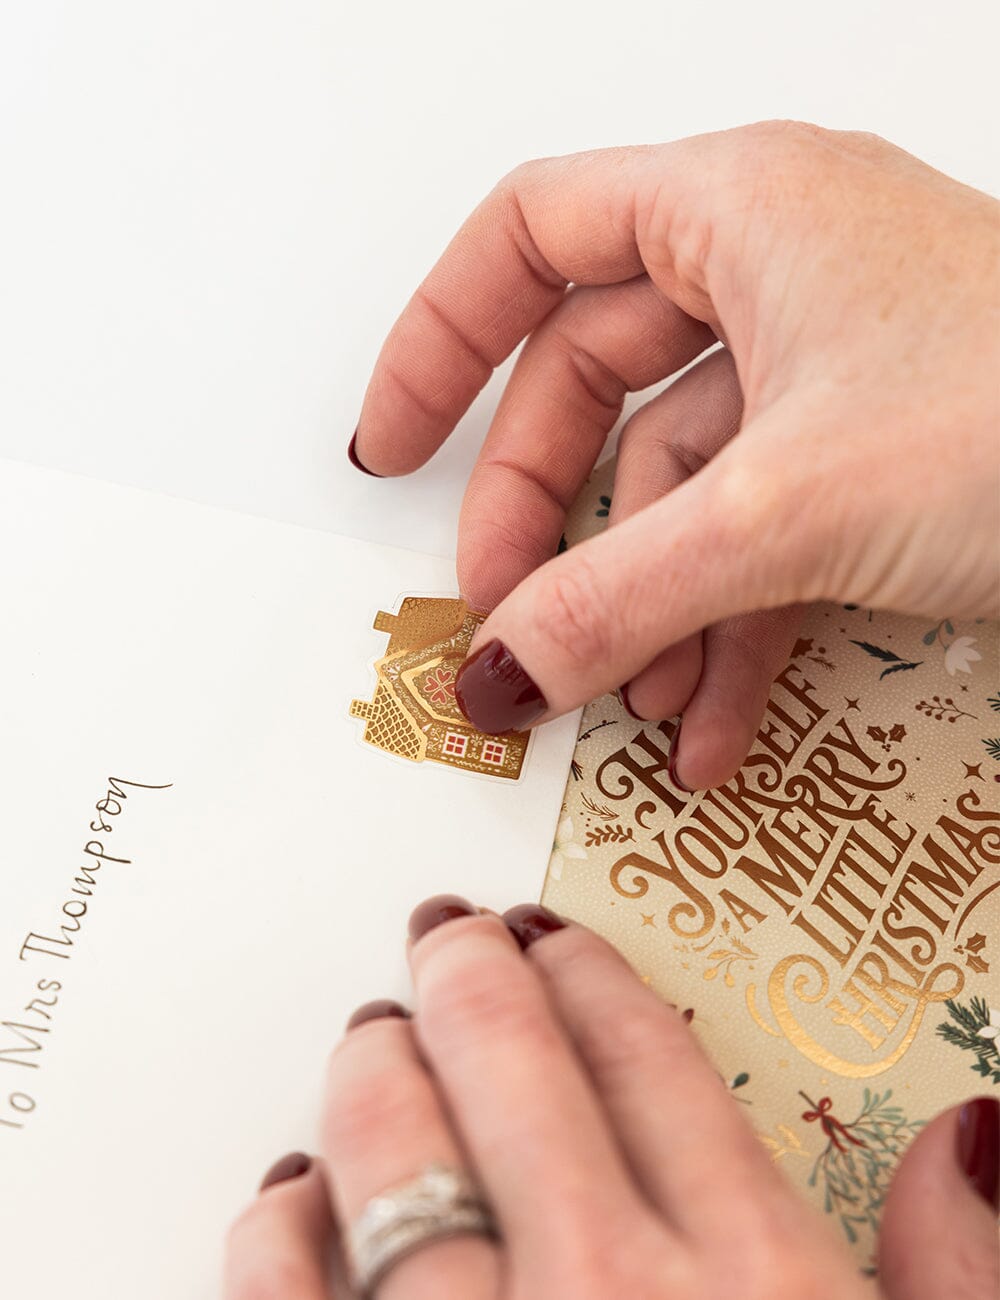 To Mrs Thompson
YOURSELF
A MERRY
LITTLE
CHRISTMAS